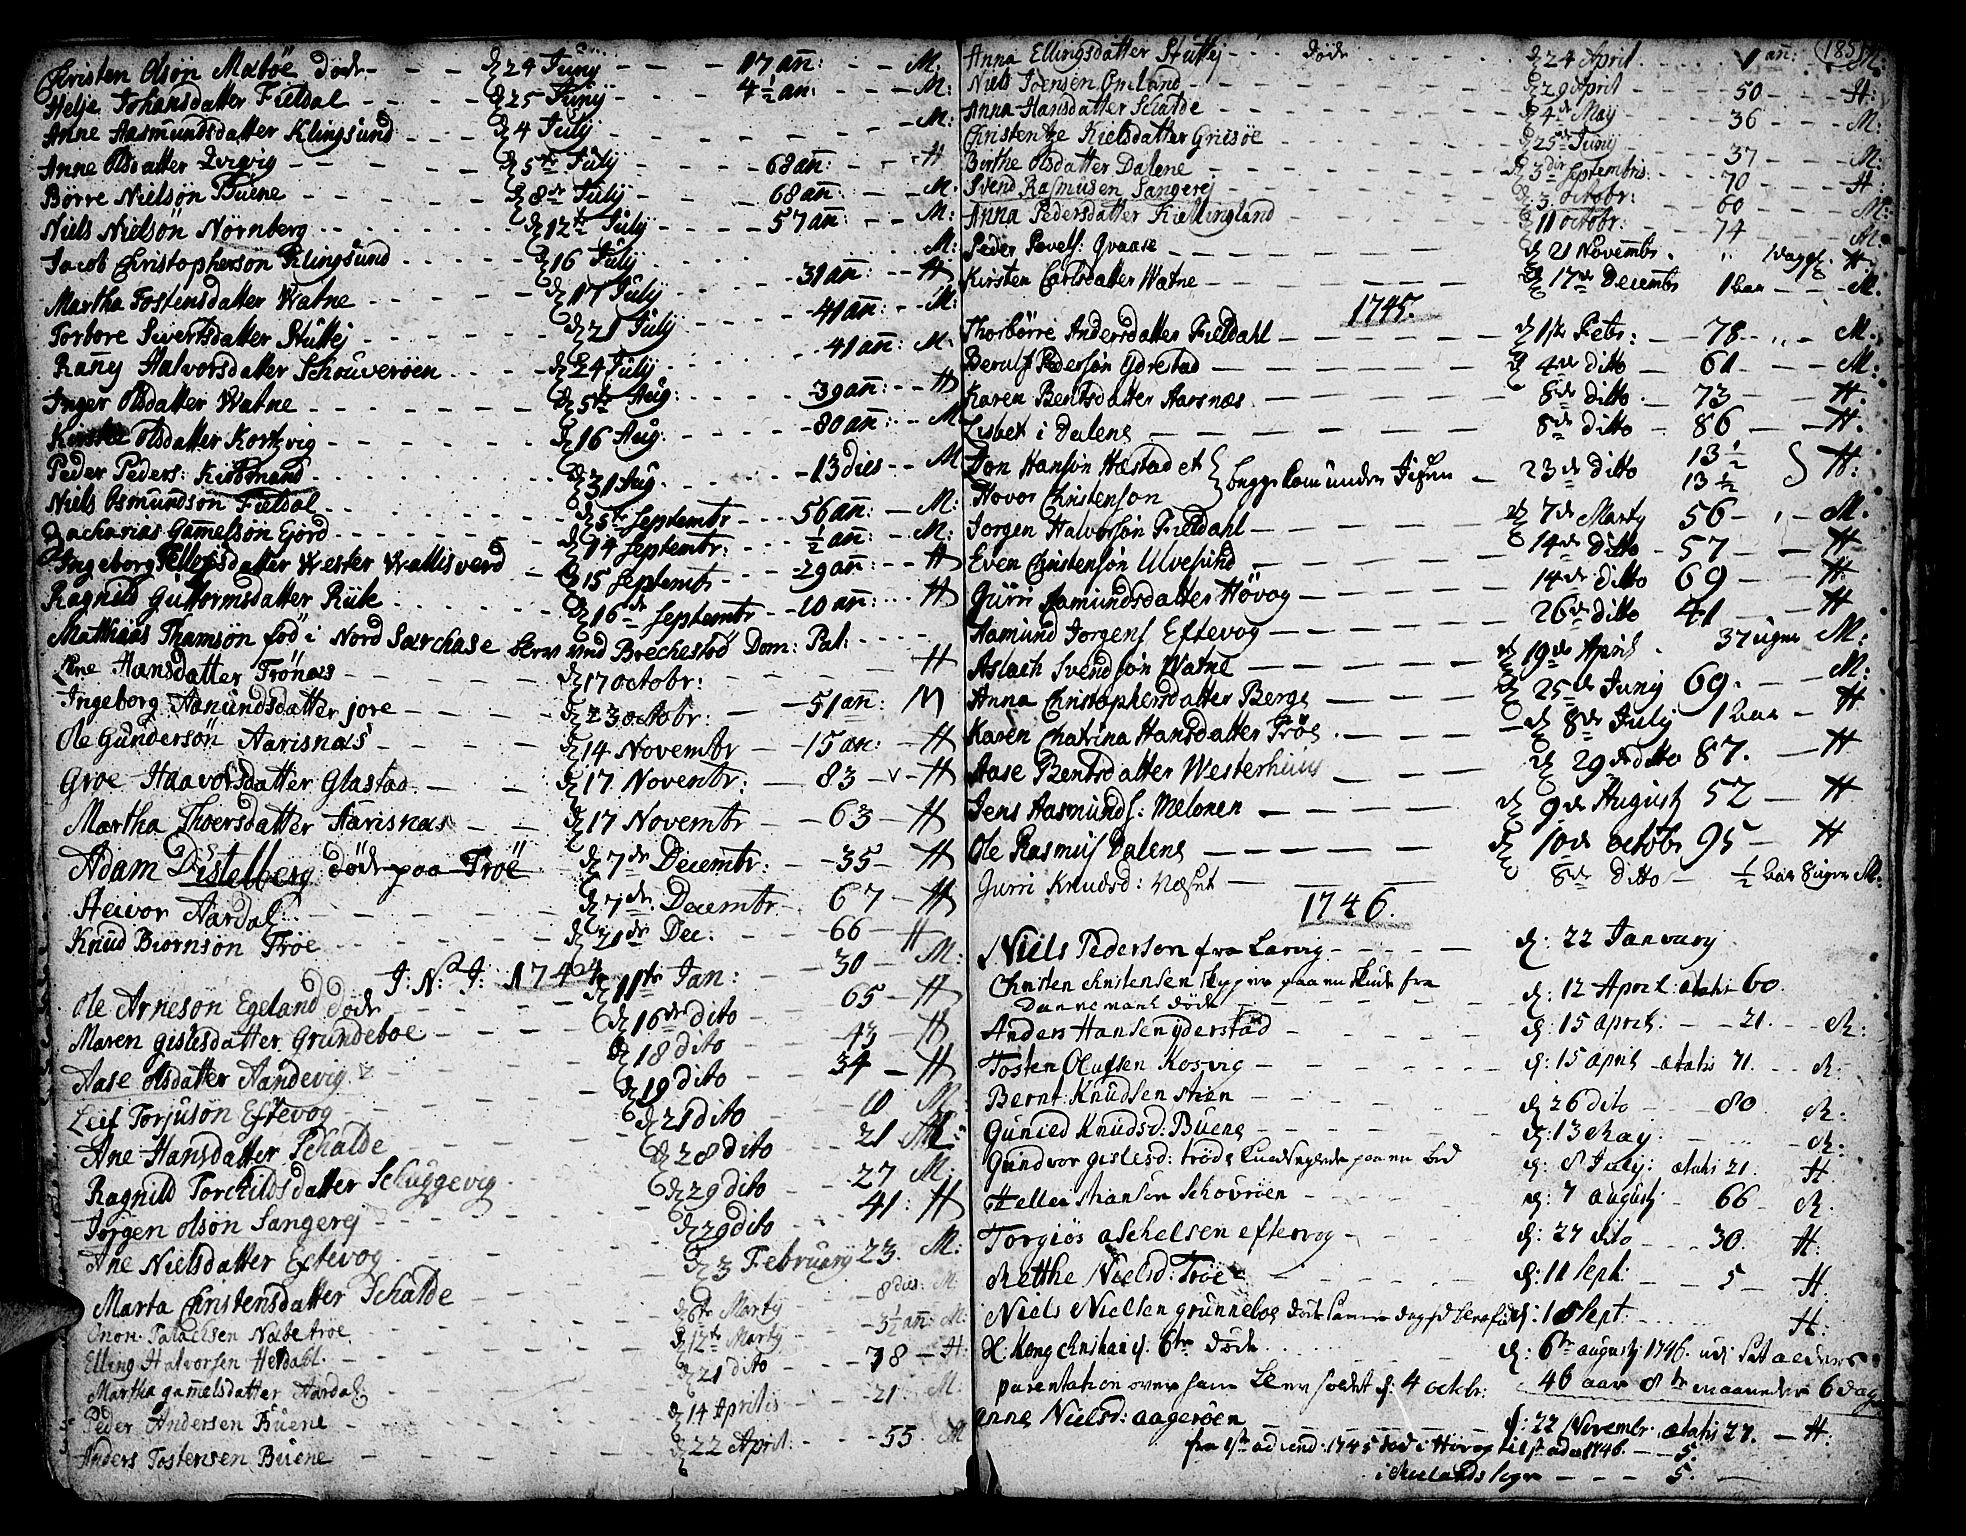 Christen Olsön Maböe döde - - d 24 Junij - - 17 an̄: - - M:
Helje Johansdatter Fieldal - - d 25 Junij - - 4½ an: - - M:
Anne Aasmundsdatter Klingsund - - d 4 Julij - - M:
Anne Olsdatter - - d 5te Julij - - 68 an̄: - - H
Börre Nielsön Buene - - d 8de Julij - - 68 an̄: - - M:
Niels Nielsön Nörnberg - - d 12te Julij - - 57 an̄ - - M:
Jacob Christophersön Klingsund - - d 16 Julij - - M:
Martha Tostensdatter Watne - - d 17 Julij - - 31 an̄: - - H
Torbore Sivertsdatter Stuttej - - d 21 Julij - - 41 an̄: - - M:
Ran̄y Halvorsdatter Schouveröen - - d 24 Julij - - 41 an̄: - - M:
Inger Olsdatter Watne - - d 5te Aug: - - 39 an̄: - - H
Olsdatter Kortvig - - d 16 Aug. - - 80 an̄: - - M
Peder Peders: - - d 31 Aug. - - 13 dies - - M
Niels Osmundsön Fieldal - - d 5te Septembr - - 56 an̄: - - M:
Zacharias Gam̄elsön Ejörd - - d 14 Septembr: - - ½ an̄: - - M:
Ingeborg Pellersdatter Wester Wallisverd - - d 15 Septembr - - 29 an̄: - - H
Ragnild Guttormsdatter Riik - - d 16de Septembr - - 10 an̄: - - H
Matthias Thamsön föd i Nord blev ved Brechestöd Dom: Pal: - -
Line Hansdatter Trönæs - - d 17 octobr: - - H
Ingeborg Aanundsdatter jore - - d 23 octobr: - - 51 an̄: M
Ole Gundersön Aarisnæs - - d 14 Novembr - - 15 an: - H
Groe Haavorsdatter Glastad - - d 17 Novembr: - - 83 - H
Martha Thoersdatter Aarisnæs - - d 17 Novembr - - 63 - H
Adam Distelberg döde paa Tröe - - d 7de Decembr: - - 35 - H
Heivor Aardal - - d 7de Decembr - - 67 - H
Knud Biornsön Tröe - - d 21de Dec: - - 66 - H
J: N: J: 1744
Ole Arnesön Egeland döde - - d 11te Jan: - - 30 - M:
Maren Gislesdatter Grundeboe - - d 16de dito - - 65 - H
Aase Olsdatter Aandevig - - d 18 dito - - 43 - H
Leif Torjusön Eftevog - - d 19 dito - - 34 - H
Ane Hansdatter Schalde - - d 21 dito - - M:
Ragnild Torchildsdatter Schuggevig - - d 28 dito - - 21 M:
Jörgen Olsön Sangerej - - d 29 dito - - 27 M:
Ane Nielsdatter Eftevog - - d 29 dito - - 41: H
Marta Christensdatter Schalde - - d 3 Februarij 23. M:
- - d 6te Martij - - 8 dies: M:
Elling Halvorsen Heldahl. - - d 12te Martij - - 3½ an̄: M
Martha gam̄elsdatter Aardal - - d 21 dito - - 78 - H:
Peder Andersen Buene - - d 14 Aprilis - - 21 M.
Anders Tostensen Buene - - d 22 April: - - 55 M
185
Anna Ellingsdatter Stuttej - - döde - - d 24 April - - 1 an̄: M:
Niels Joensen Omland - - d 29 April - - 50 - H:
Anna Hansdatter Schalde - - d 4de Maij - - 36 - M:
Christentze Kielsdatter Grisöe - - d 25de Junij - - 37 - M:
Berthe Olsdatter Dalene - - d 3die Septembris - - 70 - H:
Svend Rasmusen Sangerej - - d 3 octobr: - - 60 - M:
Anna Pedersdatter Kiellingland - - d 11 octobr: - - 74 - M:
Peder Povels: Gvaase - - d 21 Novembr. - - H
Kirsten Carlsdatter Watne - - d 17de Decembr - 1 aar - M.
1745.
Thorbörre Andersdatter Fieldahl - - d 1ste Febr: - 78 - M.
Berulf Pedersön Ydrestad - - d 4de ditto - 61 - M:
Karen Bentsdatter Aarsnæs - - 8de ditto - 73 - H.
Lisbet i Dalene - - 8de ditto - 86 - H.
Jon Hansön Hæstad et } begge kom under Jisen - 23de ditto 13½ } H:
Hovor Christensön 13½
Jorgen Halvorsön Fieldahl - - d 7de Martij 56 - M.
Even Christensön Ulvesund - - 14de ditto - 57 - H
Gurri Aamundsdatter Hövog - - 14de ditto 69 - H.
Aamund Jorgens Eftevog - - 26de ditto 41 - H
Aslach Svendsön Watne - - d 19de April . 37 uger M:
Anna Christophersdatter Berge - - d 25de Junij 69. - M:
Karen Chatrina Hansdatter Tröe. - - d 8de Julij 1 aar - H
Aase Bentsdatter Westerhuus - - d 29de ditto 87. - H
Jens Aasmunds: Melonen - - d 9de Augustj 52 - H
Ole Rasmus Dalene - - d 10de octobr 95 - H
Jurri Knudsd: Næset - - 8de ditto - ½ aar 8 uger M:
1746.
Niels Pederson fra Larvig - - d: 22 January
Christen Christensen skipper paa en skude fra
Dannemark döde - - d: 12 April ætatis 60.
Anders Hansen yderstad - - d: 15 april: - - 21. - M:
Tosten Olufsen Kosvig - - d: 15 april ætatis 71. - M:
Bernt Knudsen - - d: 26 dito - - 80. M:
Gunild Knudsd: Buene - - d: 13 May: - - M:
Gundvor gislesd: - - d: 8 July: ætatis 21. H
Helle Hansen Schovröen - - d: 7 augustj - 66 - M.
Torgiös aschelsen eftevog - - d: 27 dito - - 30. H:
Mette Nielsd: Tröe - - d: 11 Sept: - - 5 - H
Niels Nielsen grunneboe döde samme dag - - d: 1 Sept. - - H:
H: Kong Christian d: 6te döde - - d: 6te augustj 1746. udi sit alders
parentation over ham blev holdet d: 4 octbr: 46 aar 8te maaneder 6 dag
anne Nielsd: aageröen - - d: 22 Novembr. ætatis 27. - H:
fra 1ste advend: 1745 död i Hövog til 1st adv 1746. - - 5.
i sogn - - - 5.